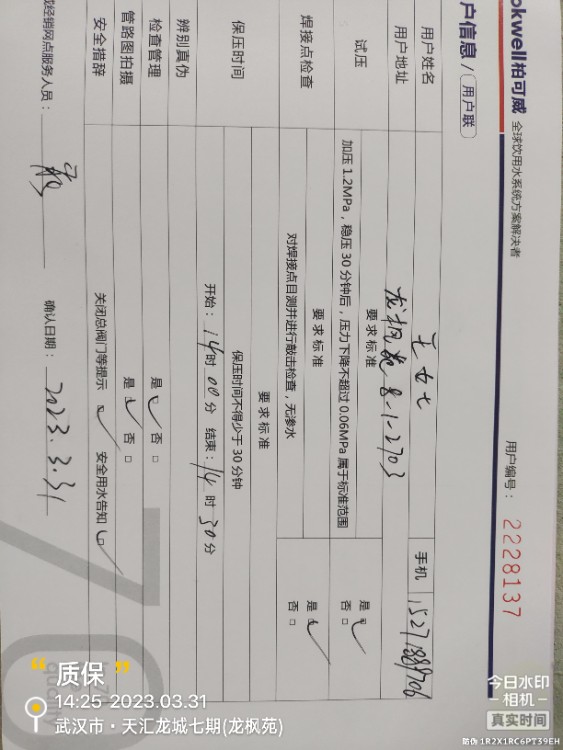 okwell柏可威 全球饮用水系统方案解决者
用户编号： 2228137
户信息 / 用户联
用户姓名 王女士 手机
用户地址 龙枫苑 8-1-2703
试压 要求标准
加压 1.2MPa，稳压 30 分钟后，压力下降不超过 0.06MPa 属于标准范围 是 ☑ 否 □
焊接点检查 要求标准
对焊接点目测并进行敲击检查，无渗水 是 ☑ 否 □
保压时间 要求标准
保压时间不得少于 30 分钟
开始：14 时 00 分 结束：14 时 30 分
辨别真伪
检查管理 是 ☑ 否 □
管路图拍摄 是 ☑ 否 □
安全措辞 关闭总阀门等提示 ☑ 安全用水告知 ☑
经销网点服务人员：
确认日期： 2023.3.31
“ 质保 ”
14:25 2023.03.31
武汉市·天汇龙城七期(龙枫苑)
今日水印
相机
真实时间
防伪 1R2X1RC6PT39EH